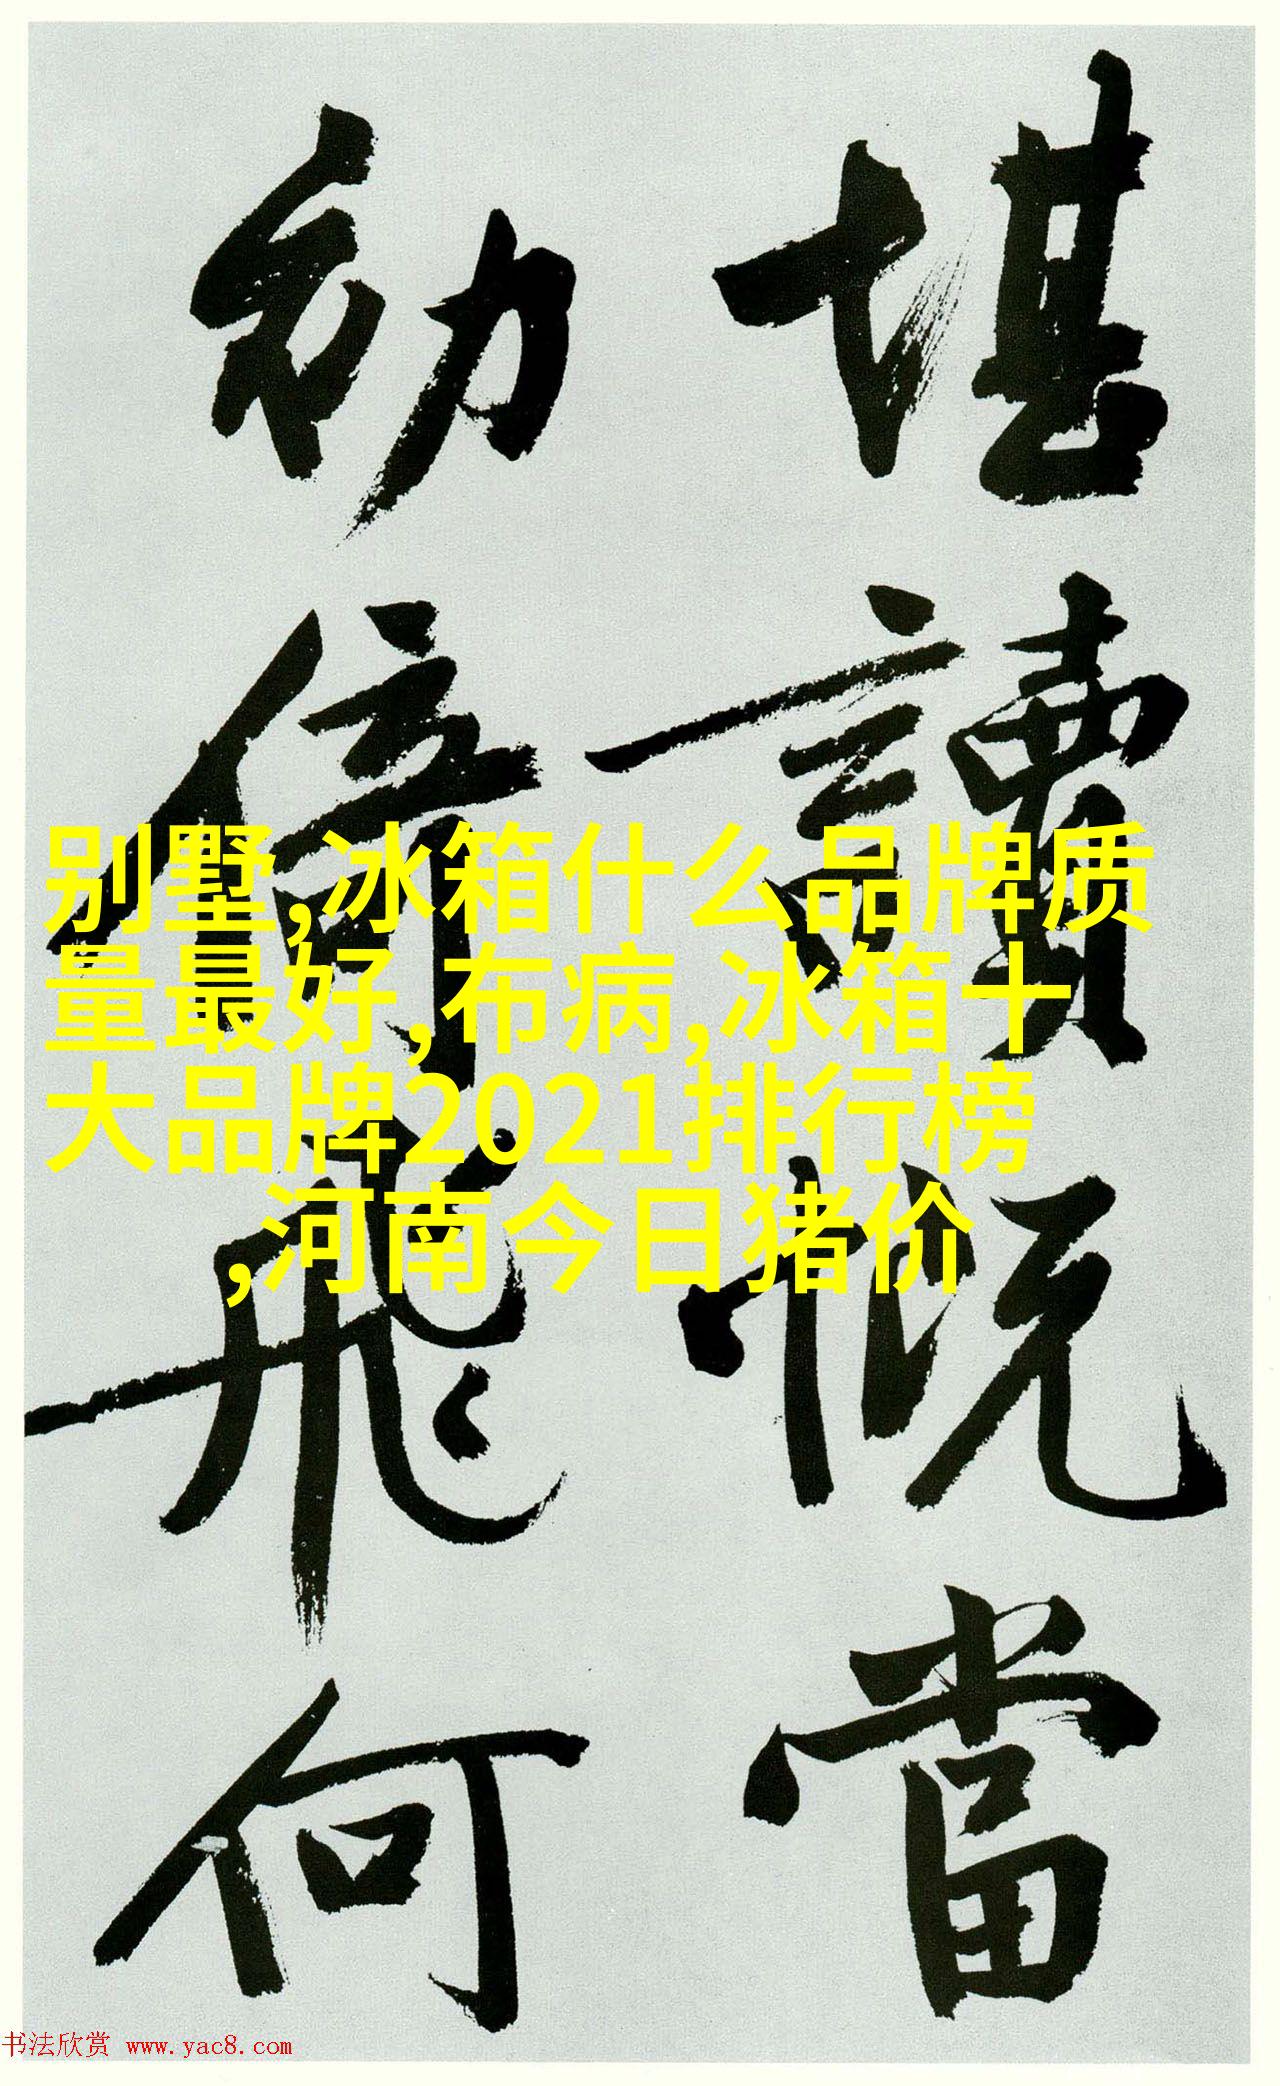 堪讀慨當
初倚飛何
别墅,冰箱什么品牌质
量最好,布病,冰箱十
大品牌2021排行榜
,河南今日猪价
书法欣赏 www.yac8.com